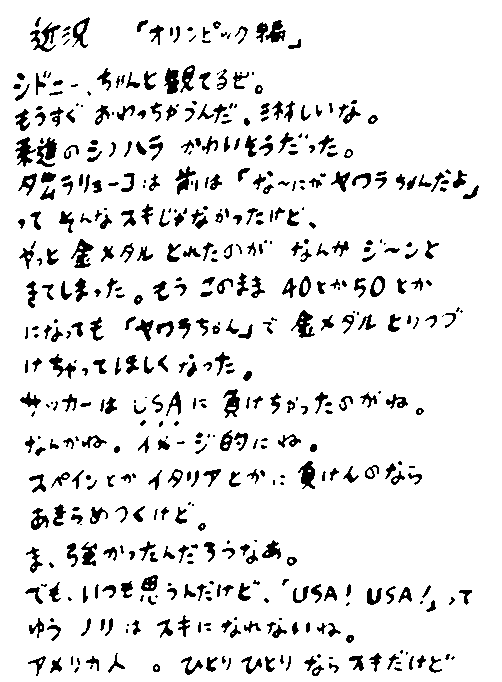 近況 「オリンピック編」
シドニー、ちゃんと観てるぜ。
もうすぐ おわっちゃうんだ、淋しいな。
柔道のシノハラ かわいそうだった。
タムラリョーコは 前は「な〜にが ヤワラちゃんだよ」
って そんなスキじゃなかったけど、
やっと 金メダル とれたのが なんか ジ〜ンと
きてしまった。もう このまま 40とか50とか
になっても 「ヤワラちゃん」で 金メダルとりつづ
けちゃってほしくなった。
サッカーは USAに 負けちゃったのがね。
なんかね。イメージ的にね。
スペインとか イタリアとかに 負けんのなら
あきらめつくけど。
ま、強かったんだろうなあ。
でも、いつも思うんだけど、「USA! USA!」って
ゆう ノリは スキになれないね。
アメリカ人 。ひとりひとり ならスキだけど